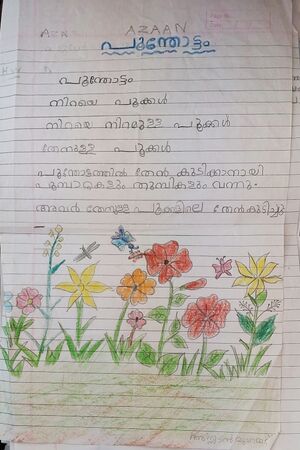 AZAAN
പൂന്തോട്ടം
പൂന്തോട്ടം
നിറയെ പൂക്കൾ
നിറയെ നിറമുള്ള പൂക്കൾ
തേനുള്ള പൂക്കൾ
പൂന്തോട്ടത്തിൽ തേൻ കുടിക്കാനായി
പൂമ്പാറ്റകളും തുമ്പികളും വന്നു.
അവർ തേനുള്ള പൂക്കളിലെ തേൻ കുടിച്ചു